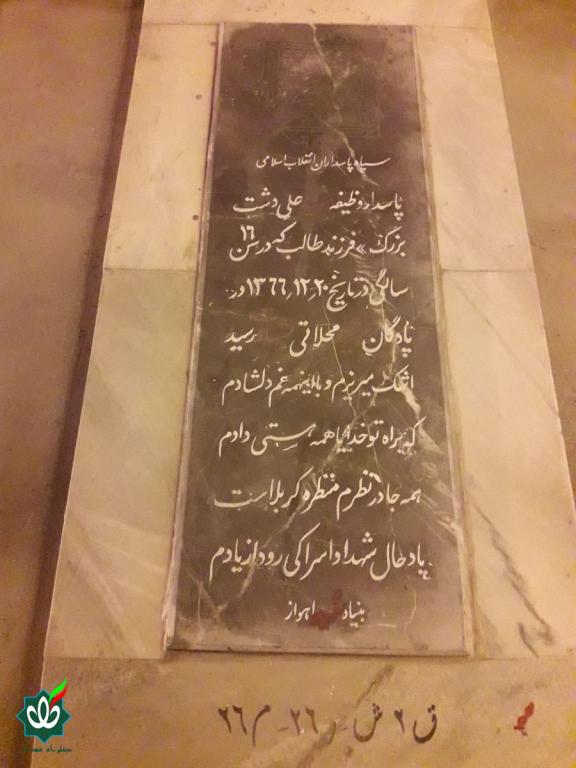 سپاه پاسداران انقلاب اسلامی
پاسدار وظیفه علی دشت
بزرگ» فرزند طالب که در سن ۱۶
سالگی در تاریخ ۲۰-۱۲-۱۳۶۶ در
پادگان محلاتی رسید
اشک میریزم و با اینهمه غم دلشادم
که براه تو خدایا همه هستی دادم
همه جا در نظرم منظره کربلا است
یاد حال شهدا و اسرا کی رود از یادم
بنیاد شهید اهواز
ق ۲ ش - ۲۶ - م ۲۶